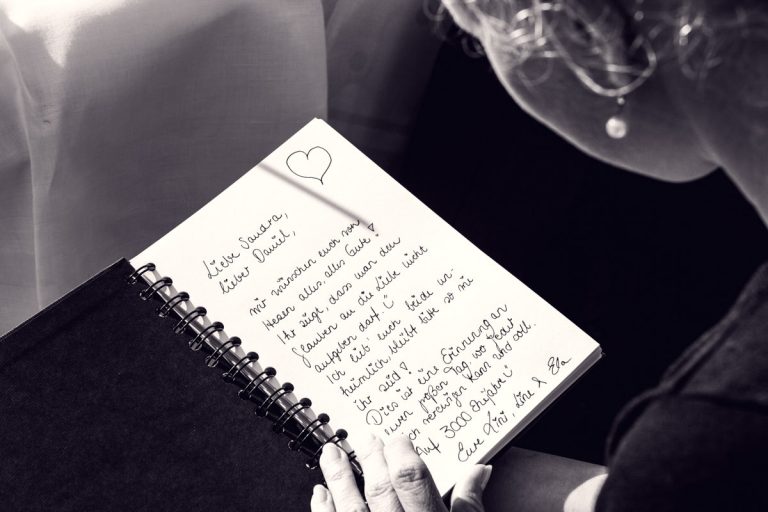 Liebe Sandra,
lieber Daniel,
wir wünschen euch von
Herzen alles, alles Gute!
Ihr zeigt, dass man den
Glauben an die Liebe nicht
aufgeben darf.
Ich lieb' euch beide un-
heimlich, bleibt bitte so wie
ihr seid!
Dies ist eine Erinnerung an
euren großen Tag, wo
ich verewigen kann und soll.
Auf 3000
Eure Kini, Line & Ela